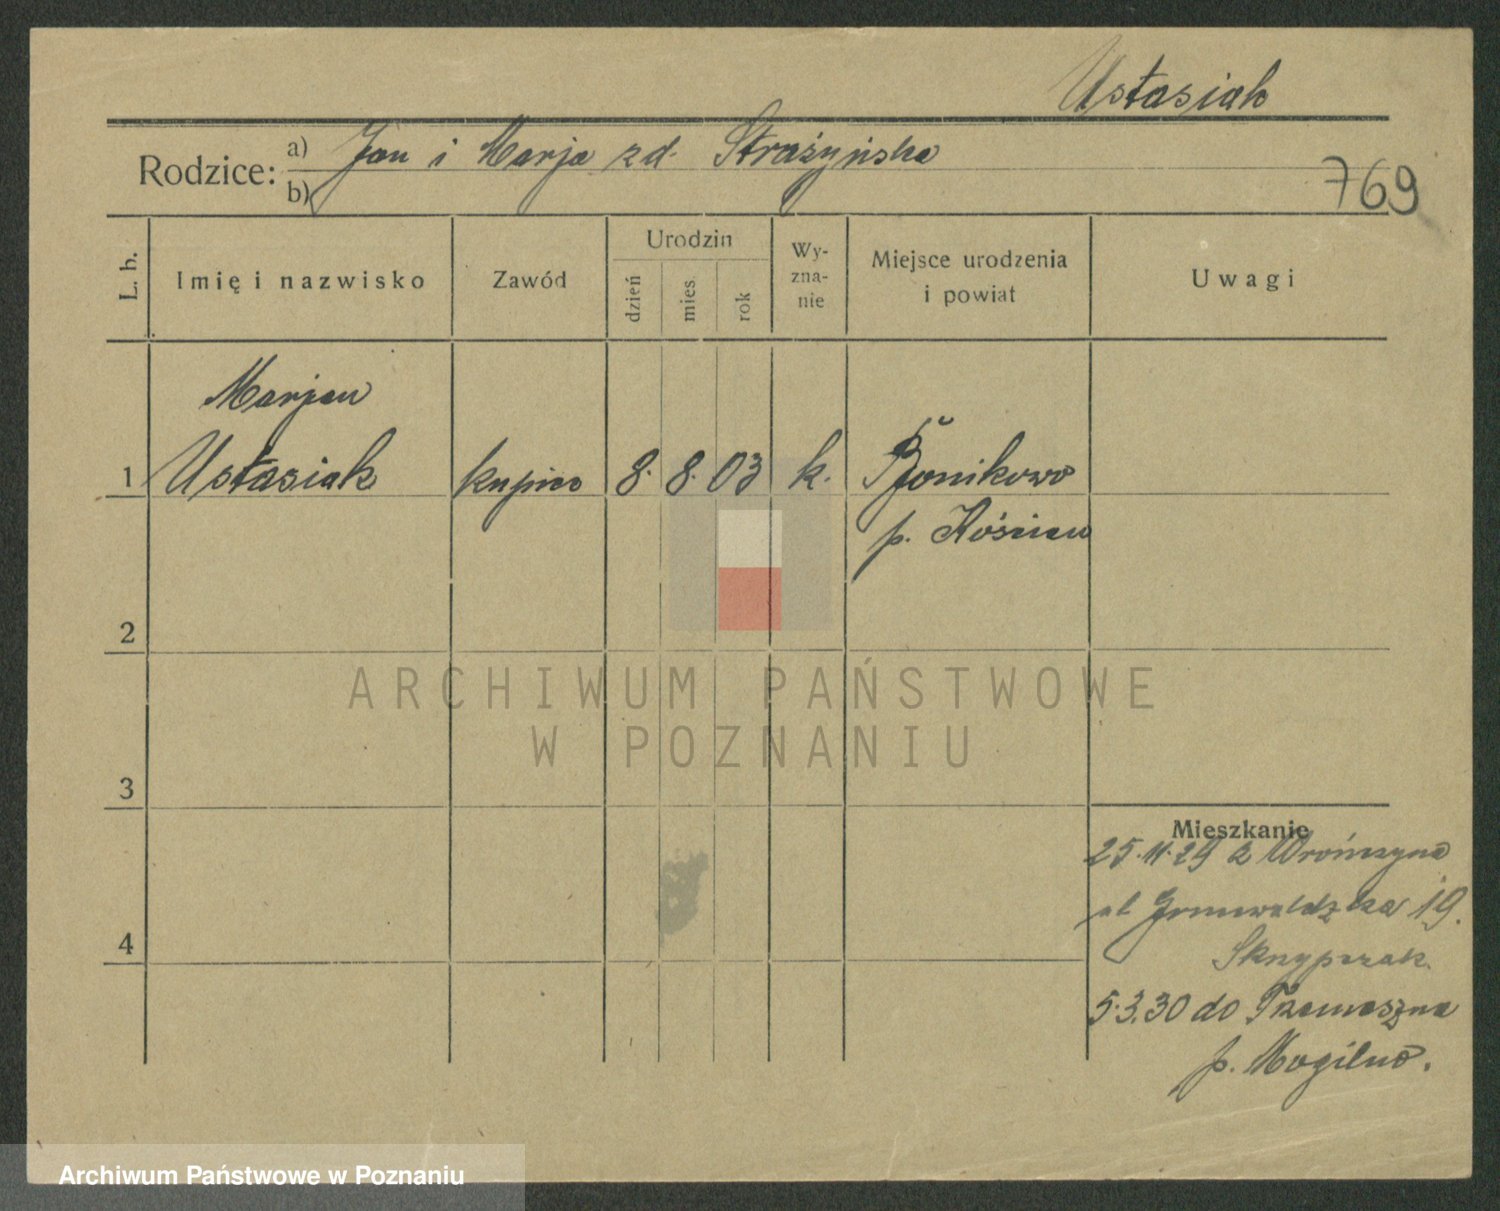 Ustasiak
Rodzice: a) Jan i Marja zd. Strażyńska
b)
769
L. b.
Imię i nazwisko
Zawód
Urodzin
dzień
mies.
rok
Wy-
zna-
nie
Miejsce urodzenia
i powiat
Uwagi
Marjan
1 Ustasiak kupiec 8. 8. 03 k. Bonikowo
p. Kościan
2
3
4
Mieszkanie
25.11.29 z Wrończyna
ul Grunwaldzka 19.
Skrzypczak
5.3.30 do Trzemeszna
p. Mogilno.
ARCHIWUM PAŃSTWOWE
W POZNANIU
Archiwum Państwowe w Poznaniu